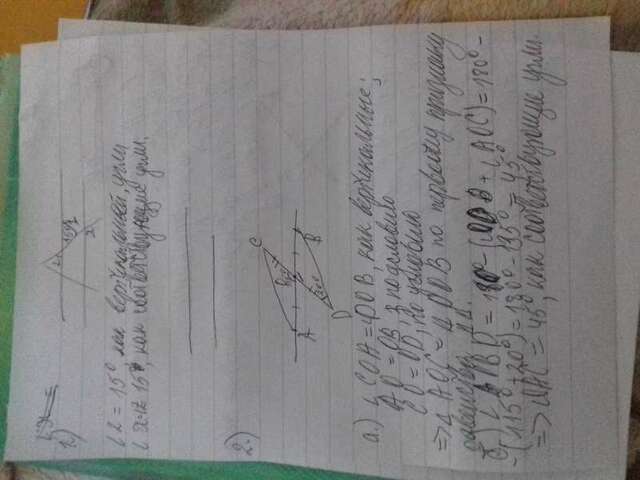 ∠x =
1)
∠1
15°
x
∠2 = 15°, как вертикальный, угли
∠x = 15°, как соответствующие угли.
2.)
C
A
B
20°
D
а.) ∠COA = DOB, как вертикальные;
AO = OB, по условию
CO = OD, по условию
=> △AOC = △DOB по первому признаку
равенства
б) ∠OBD = 180° - (∠ODB + ∠AOC) = 180° -
- (115° + 20°) = 180° - 135° = 45°
=> ∠OAC = 45°, как соответствующие угли.